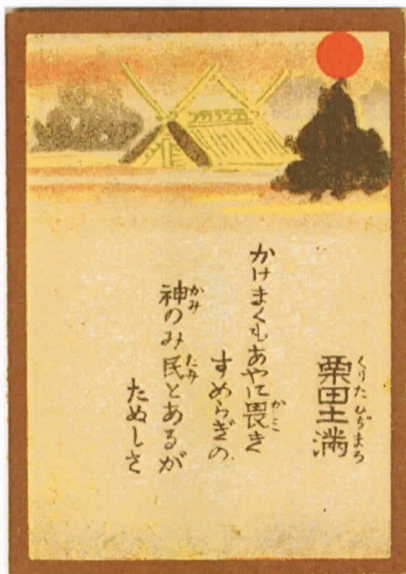 栗田土満
くりたひぢまろ
かけまくもあやに畏き
かしこ
すめらぎの
神のみ民とあるが
かみ たみ
たぬしさ